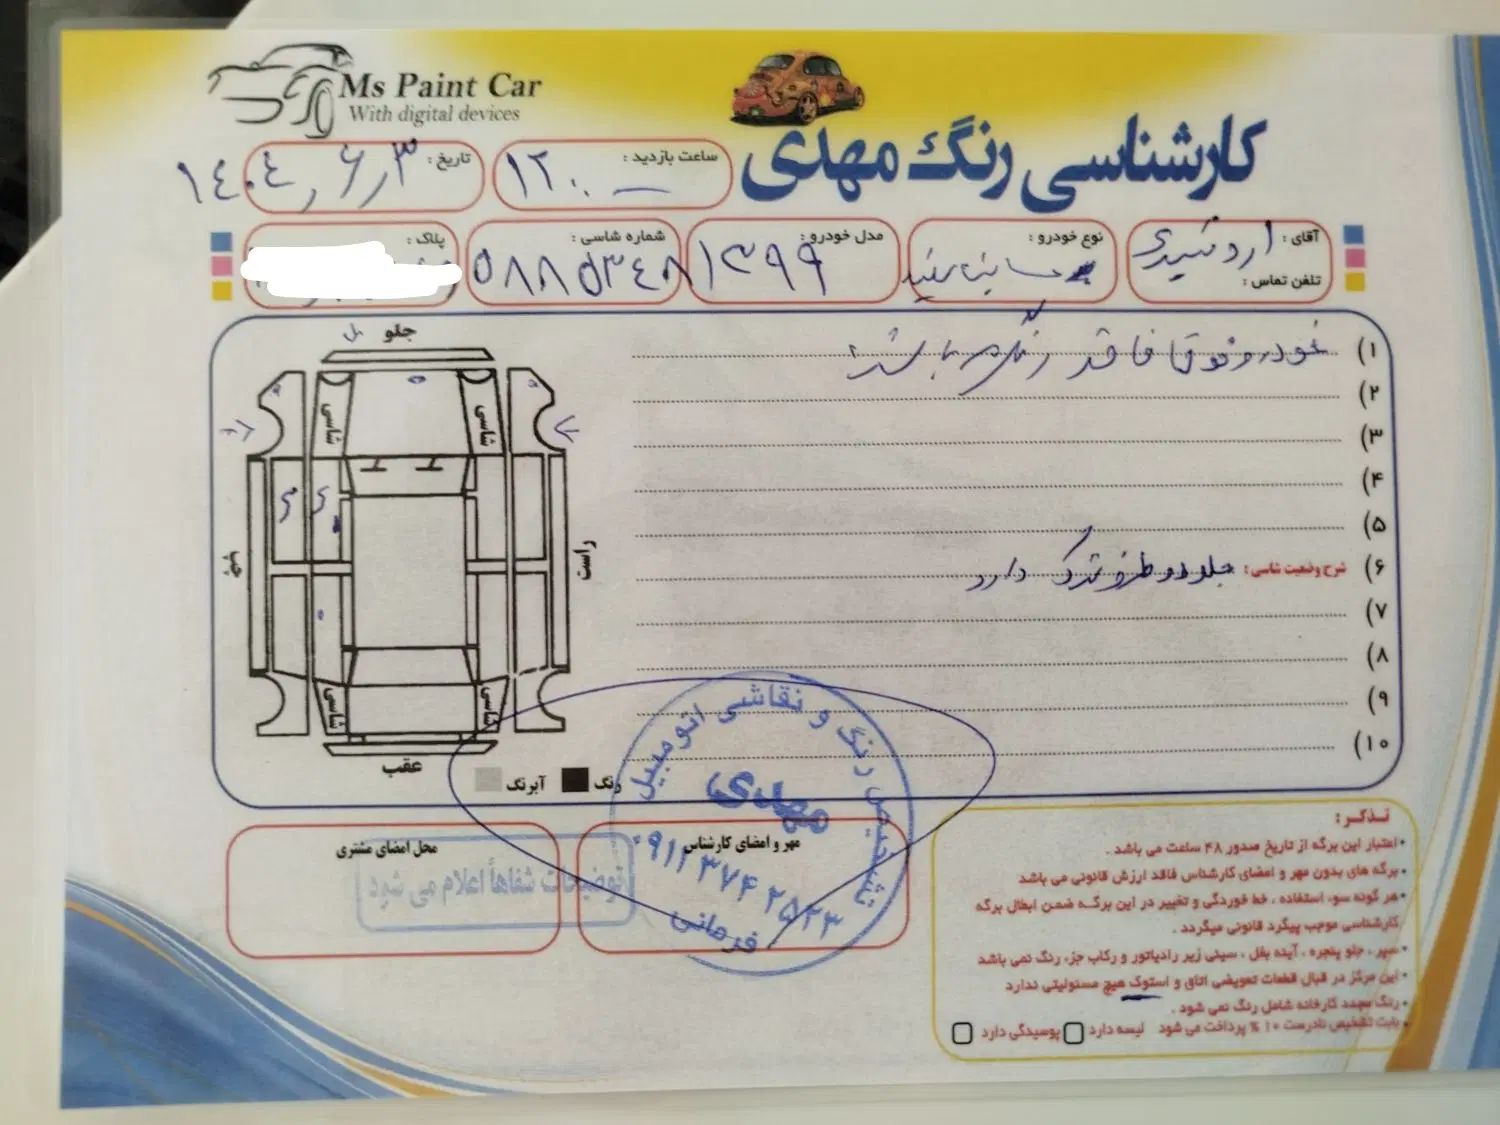 Ms Paint Car
With digital devices
کارشناسی رنگ مهدی
ساعت بازدید : ۱۲:۰۰
تاریخ : ۱۴۰۴,۶,۳
آقای :
تلفن تماس :
نوع خودرو : ساینا سفید
مدل خودرو : ۱۳۹۹
شماره شاسی : ۵۸۸۵۳۴۸
پلاک :
جلو
شاسی
شاسی
چپ
راست
شاسی
شاسی
عقب
رنگ
آبرنگ
۱) خودرو فوق فاقد رنگ می باشد
۲)
۳)
۴)
۵)
۶) شرح وضعیت شاسی : جلو دو طرف ترک دارد
۷)
۸)
۹)
۱۰)
تشخیص رنگ و نقاشی اتومبیل
مهدی
۰۹۱۲۳۷۴۲۵۲۳
فرمانی
مهر و امضای کارشناس
محل امضای مشتری
توضیحات شفاهاً اعلام می شود
تذکر :
• اعتبار این برگه از تاریخ صدور ۴۸ ساعت می باشد .
• برگه های بدون مهر و امضای کارشناس فاقد ارزش قانونی می باشد
• هر گونه سوء استفاده ، خط خوردگی و تغییر در این برگه ضمن ابطال برگه
کارشناسی موجب پیگرد قانونی میگردد .
• سپر ، جلو پنجره ، آینه بغل ، سینی زیر رادیاتور و رکاب جزء رنگ نمی باشد
• این مرکز در قبال قطعات تعویضی اتاق و استوک هیچ مسئولیتی ندارد
• رنگ مجدد کارخانه شامل رنگ نمی شود .
• بابت تشخیص نادرست ۱۰ % پرداخت می شود لیسه دارد پوسیدگی دارد